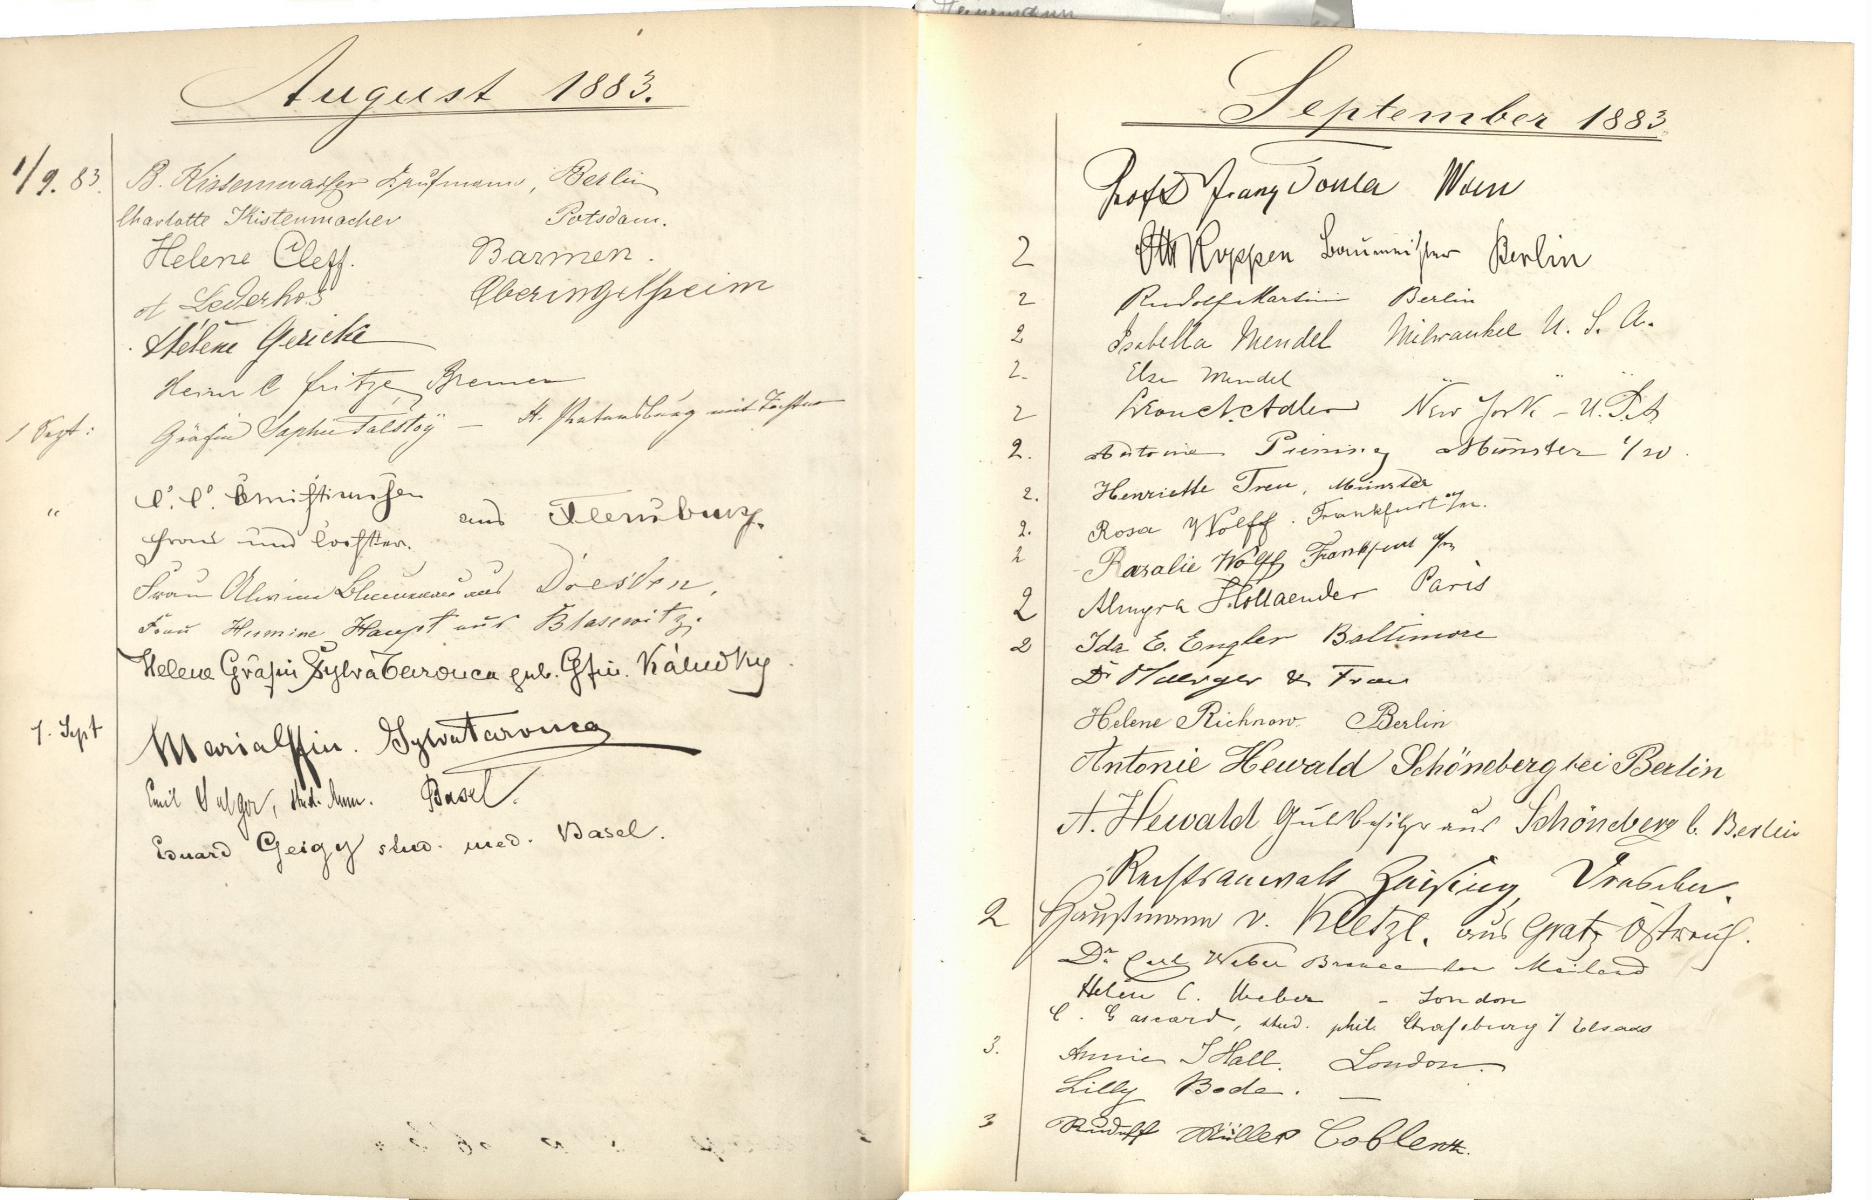 August 1883.
1/9. 83. B. Kistenmacher Kaufmann, Berlin
Charlotte Kistenmacher Potsdam.
Helene Cleff. Barmen.
Lederhos Oberingelheim
Helene Gericke
C Fritze, Bremen
1 Sept: Gräfin Sophie Tolstoy — St. Petersburg mit Tochter
" C. C. Christiansen aus Flensburg.
Frau und Tochter.
Frau Alwine aus Dresden,
Frau Hermine Haupt aus Blasewitz.
Helene Gräfin Sylva Tarouca geb. Gfin. Kálnoky
1. Sept Maria Gfin. Sylva Tarouca
Emil stud. Basel.
Eduard Geigy stud. med. Basel.
September 1883.
Profs Franz Toula Wien
2 Otto Koppen Baumeister Berlin
2 Rudolf Martini Berlin
2 Isabella Mendel Milwaukee U. S. A.
2. Else Mendel " " "
2 Adler New York - U.S.A
2. Antonie Piening Münster
2. Henriette Treu, Münster
2. Rosa Wolff. Frankfurt a/m.
2 Rosalie Wolff Frankfurt a/m
2 Almyra Hollaender Paris
2 Ida E. Engler Baltimore
Dr & Frau
Helene Richnow. Berlin
Antonie Hewald Schöneberg bei Berlin
A. Hewald Gutsbesitzer aus Schöneberg b. Berlin
Rechtsanwalt Dresden.
2 Hauptmann v. Kletzl. aus Gratz Östreich.
Dr. Carl Weber Mailand
Helen C. Weber - London
C. Gascard, stud. phil. Strassburg i/ Elsass
3. Annie J Hall. London.
Lilly Bode. —
3 Rudolf Müller Coblentz.